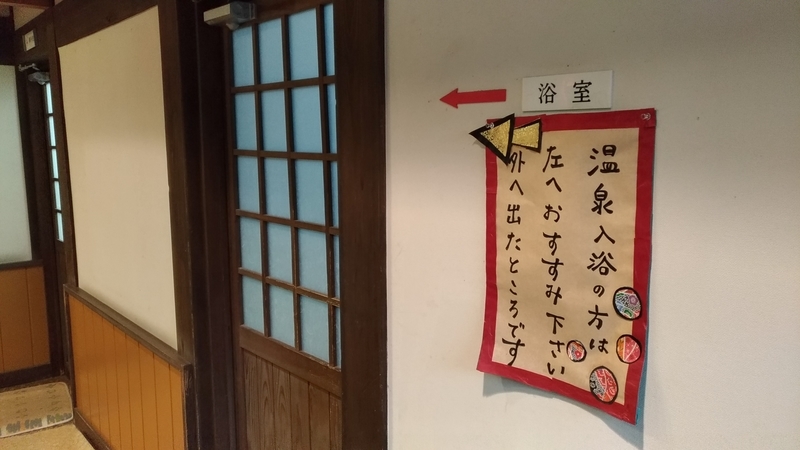 浴室
温泉入浴の方は
左へおすすみ下さい
外へ出たところです